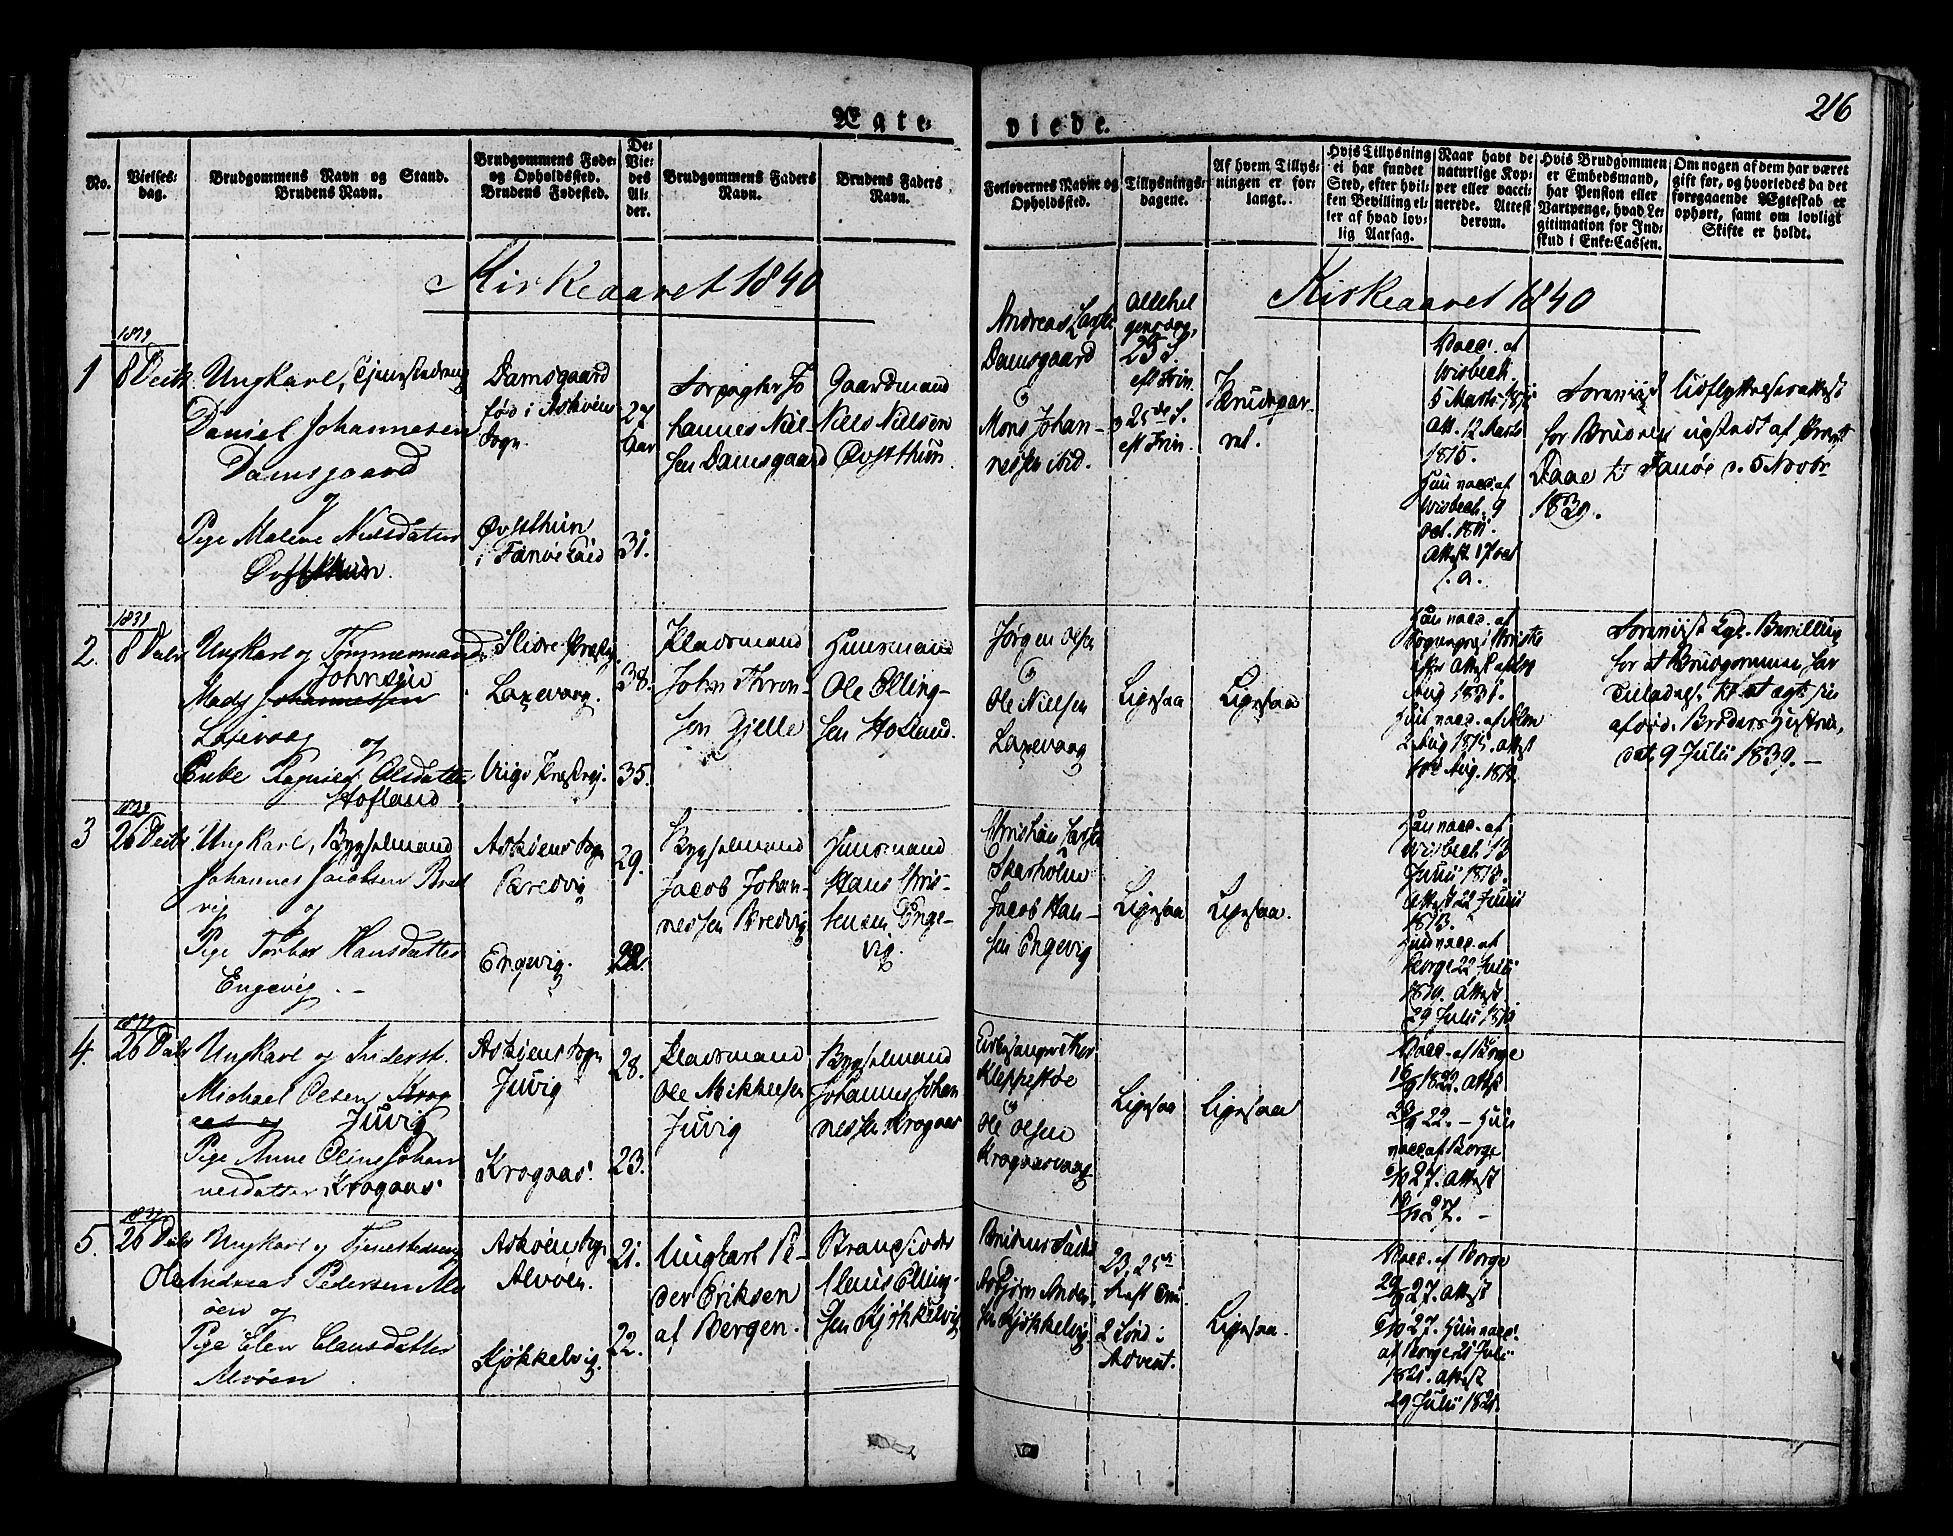 216
Ægte-
viede.
No.
Vielses-
dag.
Brudgommens Navn og Stand.
Brudens Navn.
Brudgommens Føde-
og Opholdssted.
Brudens Fødested.
De
Vie-
des
Al-
der.
Brudgommens Faders
Navn.
Brudens Faders
Navn.
Forlovernes Navne og
Opholdssted.
Tillysnings-
dagene.
Af hvem Tillys-
ningen er for-
langt.
Hvis Tillysning
ei har fundet
Sted, efter hvil-
ken Bevilling el-
ler af hvad lov-
lig Aarsag.
Naar havt de
naturlige Kop-
per eller vacci-
nerede. Attest
derom.
Hvis Brudgommen
er Embedsmand,
har Pension eller
Vartpenge, hvad Le-
gitimation for Ind-
skud i Enke-Cassen.
Om nogen af dem har været
gift før, og hvorledes da det
foregaaende Ægteskab er
ophørt, samt om lovligt
Skifte er holdt.
Kirkeaaret 1840
Kirkeaaret 1840
1839
1
8 Decbr
Ungkarl, Tjenestedreng
Daniel Johannesen
Damsgaard
og
Pige Malene Nielsdatter
Øvsthun
Damsgaard
fød i Askøens
Sogn.
Øvsthun
i Fanøe Eid
27
Aar
31.
Forpagter Jo
hannes Niel
sen Damsgaard
Gaardmand
Niels Nielsen
Øvsthun
Andreas
Damsgaard
og
Mons Johan-
nessen ibid.
Allehel
gensdag,
23 S.
eft Trin.
25de S.
eft Trin.
Brudepar-
ret.
Vacc. af
Wisbech
5 Marts
Att. 12 Marts
1815.
Hun vacc. af
Wisbech 9
Oct. 1811.
Attest 17 Oct
s. a.
Foreviist Udflyttelsesattest
for Bruden udstædt af Præst
Daae til Fanøe d. 5 Novbr
1839.
1839
2.
8 Decbr
Ungkarl og Tømmermand
Johnsen
Mads Johannessen
Laxevaag
og
Enke Ragnild Olsdatter
Hofland
Slidre Præstg
Laxevaag.
Præstegj.
38.
35.
Pladsmand
John Thron-
sen Gjelle
Huusmand
Ole Elling-
sen Hofland.
Jørgen Olsen
og
Ole Nielsen
Laxevaag
Ligesaa
Ligesaa
Aug 1831.
Hun vacc. af
2 Aug 1815. attest
Aug. 1819.
Foreviist Kgl. Bevilling
for at Brudgommen har
Tilladelse til at ægte sin
afdøde Broders Hustrue,
dat. 9 Julii 1839. —
1839
3
26 Decbr
Ungkarl, Bygselmand
Johannes Jacobsen Bred
vig og
Pige Torbor Hansdatter
Engevig. —
Askøens Sogn
Bredvig
Engevig.
29.
22.
Bygselmand
Jacob Johan-
nessen Bredvig
Huusmand
Hans Chris-
tensen Enge-
vig.
Christian
Skarholm
Jacob Han-
sen Engevig
Ligesaa
Ligesaa.
Han vacc. af
Wisbech 13
Julii 1813.
Attest 22 Junii
1813.
Hun vacc. af
Borge 22 Julii
1819. Attest
29 Julii 1819
1839
4.
26 Decbr
Ungkarl og Inderst.
Michael Olsen Krog
aas og Juvig
Pige Anne Oline Johan
nesdatter Krogaas
Askøens Sogn
Juvig
Krogaas
28.
23.
Pladsmand
Ole Mikkelsen
Juvig
Bygselmand
Johannes Johan
nessen Krogaas
Kirkesanger
Kleppestøe
og
Ole Olsen
Krogaasvaag
Ligesaa
Ligesaa
Vacc. af Borge
16/9 1822. Attest
23/9 22. — Hun
vacc. af Borge
6/10 27. Attest
27. —
1839
5.
26 Decbr
Ungkarl og Tjenestedreng
Ole Andreas Pedersen Alv
øen og
Pige Elen Clausdatter
Alvøen.
Askøens Sogn
Alvøen.
Kjøkkelvig.
21.
22.
Ungkarl Pe-
der Eriksen
af Bergen.
Strandsidder
Claus Elling-
sen Kjøkkelvig
Asbjørn Ander
sen Kjøkkelvig
23. 25de
S. eft Tri.
2 Sønd. i
Advent.
Ligesaa.
Vacc. af Borge
29/9 27. Attest
6/10 27. Hun vacc.
af Borge 21 Julii
1821. Attest
29 Julii 1821.